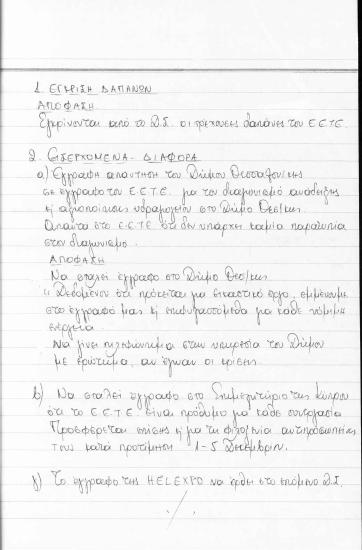 1. ΕΓΚΡΙΣΗ ΔΑΠΑΝΩΝ
ΑΠΟΦΑΣΗ
Εγκρίνονται από το Δ.Σ. οι τρέχουσες δαπάνες του Ε.Ε.Τ.Ε.
2. ΕΙΣΕΡΧΟΜΕΝΑ - ΔΙΑΦΟΡΑ
α) Έγγραφη απάντηση του Δήμου Θεσσαλονίκης
σε έγγραφο του Ε.Ε.Τ.Ε. για τον διαγωνισμό ανάδειξης
κ αξιοποίησης υδραγωγείου στο Δήμο Θεσ/κης
Απαντά στο Ε.Ε.Τ.Ε ότι δεν υπάρχει καμία παρατυπία
στον διαγωνισμό.
ΑΠΟΦΑΣΗ
Να σταλεί έγγραφο στο Δήμο Θεσ/κης
" Δεδομένου ότι πρόκειται για εικαστικό έργο, εμμένουμε
στο έγγραφό μας κ επιφυλασσόμεθα για κάθε νόμιμη
ενέργεια
Να γίνει τηλεφώνημα στην υπηρεσία του Δήμου
με ερώτημα, αν έγιναν οι κρίσεις.
β) Να σταλεί έγγραφο στο Επιμελητήριο της Κύπρου
ότι το Ε.Ε.Τ.Ε. είναι πρόθυμο για κάθε συνεργασία
Προσφέρεται επίσης κ για τη φιλοξενία αντιπροσωπείας
τους κατά προτίμηση 1-5 Δεκεμβρίου.
γ) Το έγγραφο της HELEXPO να έρθει στο επόμενο Δ.Σ.